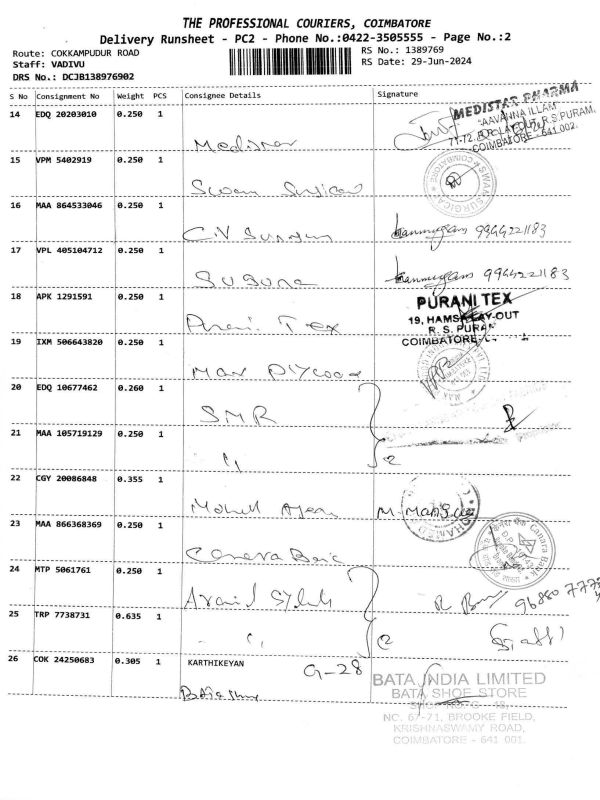 THE PROFESSIONAL COURIERS, COIMBATORE
Delivery Runsheet - PC2 - Phone No.:0422-3505555 - Page No.:2
Route: COKKAMPUDUR ROAD
RS No.: 1389769
Staff: VADIVU
RS Date: 29-Jun-2024
DRS No.: DCJB138976902
S No Consignment No Weight PCS Consignee Details Signature
14 EDQ 20203010 0.250 1
MEDISTAR PHARMA
"AAVANNA ILLAM"
R.S.PURAM,
COIMBATORE - 641 002.
15 VPM 5402919 0.250 1
Swam Surgical
SWAM SURGICAL
COIMBATORE
16 MAA 864533046 0.250 1
C.N Sundum
Shanmugam 9944221183
17 VPL 405104712 0.250 1
Suguna
Shanmugam 9944221183
18 APK 1291591 0.250 1
Purani Tex
PURANI TEX
19, HAMSA LAY-OUT
R. S. PURAM
COIMBATORE
19 IXM 506643820 0.250 1
20 EDQ 10677462 0.260 1
SMR
21 MAA 105719129 0.250 1
"
2
22 CGY 20086848 0.355 1
23 MAA 866368369 0.250 1
Canara Bank
Canara Bank
24 MTP 5061761 0.250 1
Aravind
25 TRP 7738731 0.635 1
"
2
26 COK 24250683 0.305 1 KARTHIKEYAN G-28
BATA INDIA LIMITED
BATA SHOE STORE
NC. 67-71, BROOKE FIELD,
KRISHNASWAMY ROAD,
COIMBATORE - 641 001.